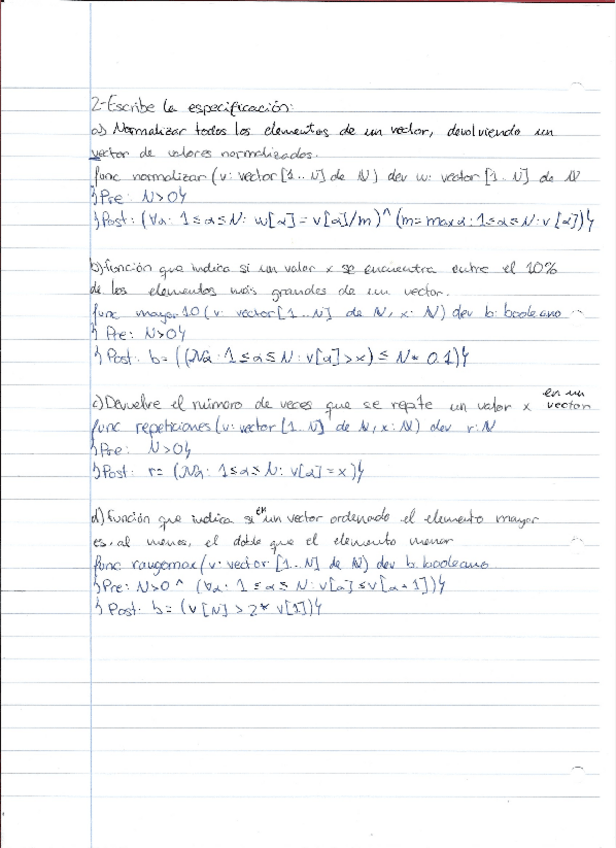 2-Escribe la especificación:
a) Normalizar todos los elementos de un vector, devolviendo un
vector de valores normalizados.
func normalizar (v: vector [1..N] de N) dev w: vector [1..N] de N
{Pre: N>0}
{Post: (∀α: 1≤α≤N: w[α]=v[α]/m)^(m=maxα:1≤α≤N:v[α])}
b) función que indica si un valor x se encuentra entre el 10%
de los elementos más grandes de un vector.
func mayor10 (v: vector [1..N] de N, x: N) dev b: booleano
{Pre: N>0}
{Post: b=((Nα: 1≤α≤N: v[α]>x)≤N*0.1)}
c) Devuelve el número de veces que se repite un valor x en un vector
func repeticiones (v: vector [1..N] de N, x: N) dev r: N
{Pre: N>0}
{Post: r=(Nα: 1≤α≤N: v[α]=x)}
d) función que indica si en un vector ordenado el elemento mayor
es, al menos, el doble que el elemento menor
func rangomax (v: vector [1..N] de N) dev b: booleano
{Pre: N>0 ^ (∀α: 1≤α≤N: v[α]≤v[α+1])}
{Post: b=(v[N]>2*v[1])}